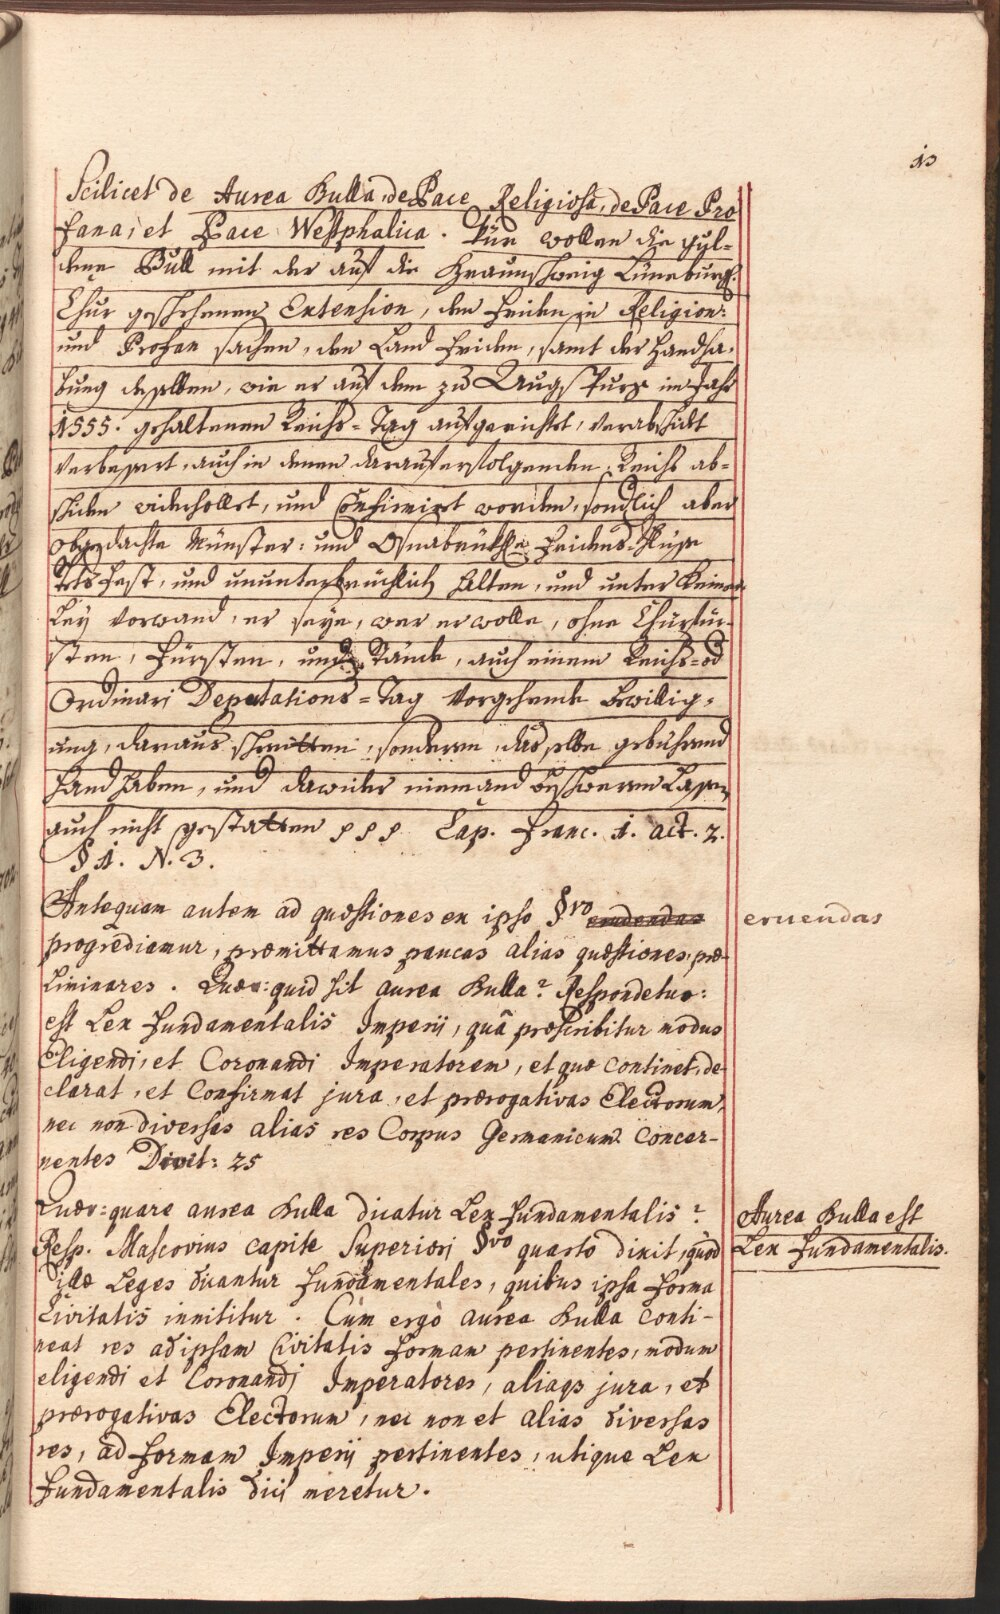 13
Scilicet de Aurea Bulla, de Pace Religiosa, de Pace Pro
fana, et Pace Westphalica. Wür wollen die gül-
dene Bull mit der auf die Braunschweig Lüneburg.
Chur geschehenen Extension, den friden in Religion:
und Profan sachen, den Land friden, samt der Handha,
bung desselben, wie er auf dem zu Augspurg im Jahr
1555. gehaltenen Reichs-Tag aufgerichtet, verabschidt
verbessert, auch in denen darauf erfolgenden Reichs ab-
schiden widerhollet, und Confirmirt worden, sondlich aber
obgedachte Münster: und Osnabrükhse fridens-Schlüsse
stets fest, und ununterbrüchlich halten, und unter keiner
ley vorwand, er seye, wer er wolle, ohne Churfür-
sten, Fürsten, und Stände, auch einem Reichs-od
Ordinari Deputations-Tag vorgehende bewillig-
ung, daraus schreitten, sonderen dasselbe gebührend
handhaben, und dawider niemand beschweren lassen,
auch nicht gestatten ppp Cap. Franc. 1. act. 2.
§ 1. N. 3.
Antequam autem ad quæstiones ex ipso §vo eruendas
progrediamur, præmittamus paucas alias quæstiones præ-
liminares. Quær: quid sit aurea Bulla? Respondetur:
est Lex fundamentalis Imperii, quâ præscribitur modus
Eligendi, et Coronandi Imperatorem, et quæ continet, de-
clarat, et Confirmat jura, et prærogativas Electorum,
nec non diversas alias res Corpus Germanicum concer-
nentes Divit: 25
Quær: quare aurea Bulla dicatur Lex fundamentalis?
Resp. Mascovius capite Superiori §vo quarto dixit, quod
illæ Leges dicantur fundamentales, quibus ipsa forma
Civitatis innititur. Cùm ergò aurea Bulla conti-
neat res ad ipsam Civitatis formam pertinentes, modum
eligendi et Coronandi Imperatores, aliaqs jura, et
prærogativas Electorum, nec non et alias diversas
res, ad formam Imperii pertinentes, utique Lex
fundamentalis dici meretur.
eruendas
Aurea Bulla est
Lex fundamentalis.